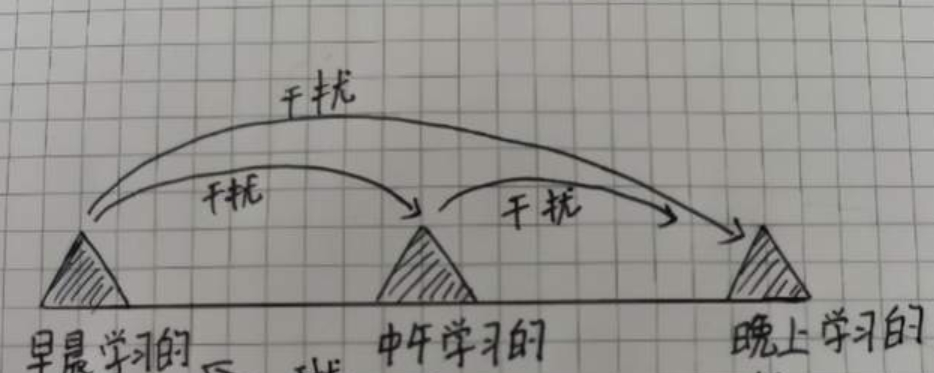 干扰
干扰
干扰
早晨学习的
中午学习的
晚上学习的